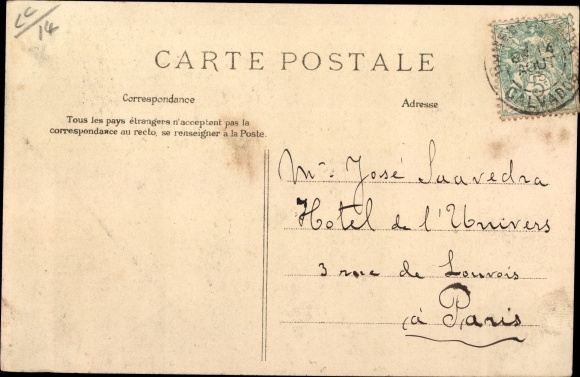 CARTE POSTALE
Correspondance
Adresse
Tous les pays étrangers n'acceptent pas la
correspondance au recto, se renseigner à la Poste.
Mr José Saavedra
Hotel de l'Univers
3 rue de Louvois
à Paris
CALVADOS
5